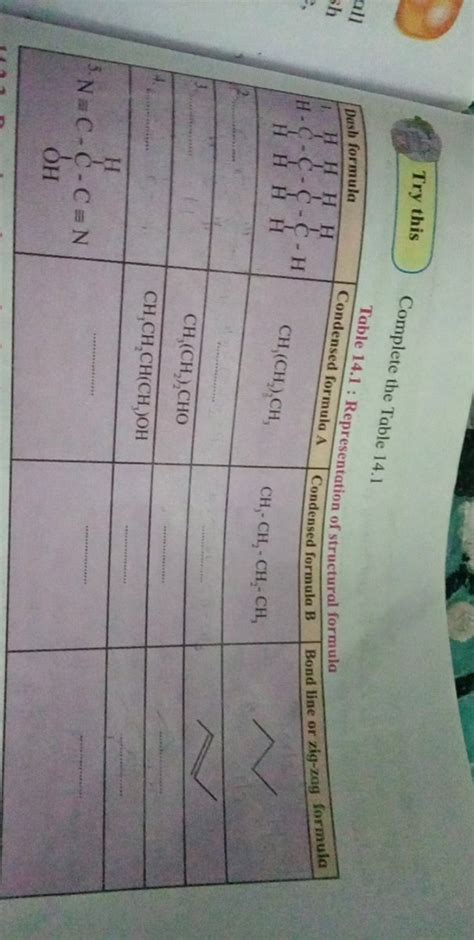 all
sh
Try this
Complete the Table 14.1
Table 14.1 : Representation of structural formula
Dash formula | Condensed formula A | Condensed formula B | Bond line or zig-zag formula
1. H H H H
H - C - C - C - C - H
H H H H
CH₃(CH₂)₂CH₃
CH₃- CH₂ - CH₂- CH₃
2. ................
................
................
3. ................
CH₃(CH₂)₂CHO
................
................
4. ................
CH₃CH₂CH(CH₃)OH
................
................
5. H
N ≡ C - C - C ≡ N
OH
................
................